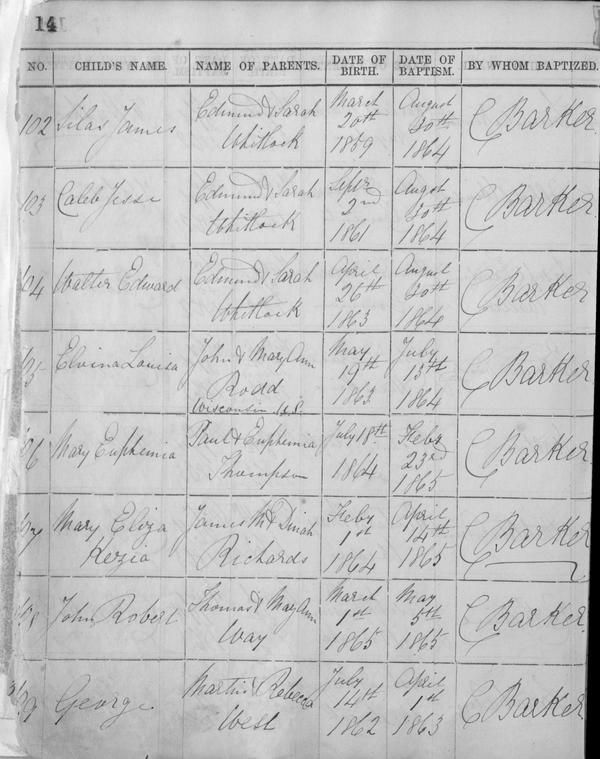 14
NO. CHILD'S NAME. NAME OF PARENTS. DATE OF BIRTH. DATE OF BAPTISM. BY WHOM BAPTIZED.
102 Silas James Edmund & Sarah Whitlock March 20th 1859 August 30th 1864 C Barker.
103 Caleb Jesse Edmund & Sarah Whitlock Sepr 2nd 1861 Augst 30th 1864 C Barker.
104 Walter Edward Edmund & Sarah Whitlock April 26th 1863 August 30th 1864 C Barker
Elvina Louisa John & Mary Ann Rodd Wisconsin U.S. May 19th 1863 July 13th 1864 C Barker
Mary Euphemia Paul & Euphemia Thompson July 18th 1864 Feby 23rd 1865 C Barker
Mary Eliza Kezia James & Dinah Richards Feby 1st 1864 April 14th 1865 C Barker
John Robert Thomas & Mary Ann Way March 1st 1865 May 5th 1865 C Barker.
George Martin & Rebecca West July 14th 1862 April 1st 1863 C Barker